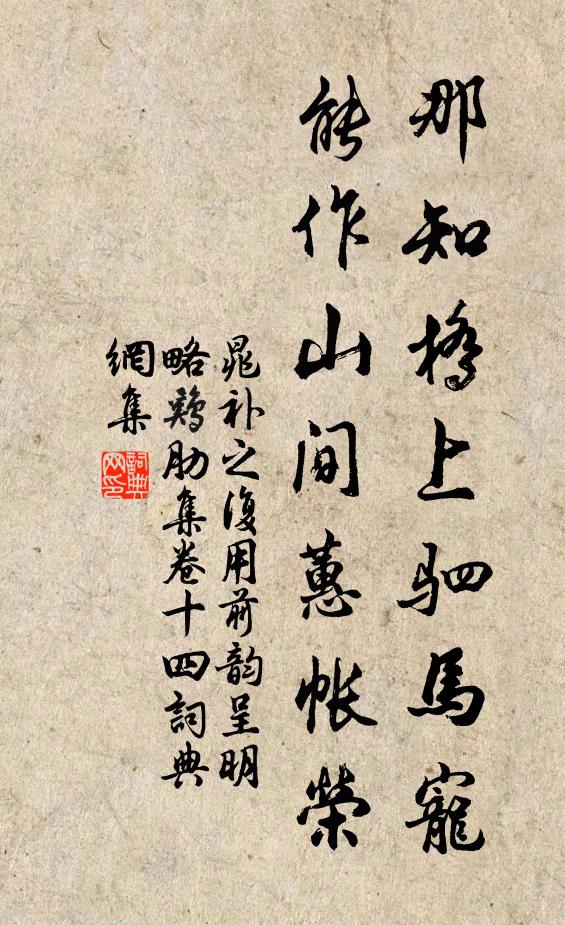 那知橋上駟馬寵
能作山間蕙帳榮
晁補之復用前韵呈明
略鷄肋集卷十四詞典
網集
詞典網印